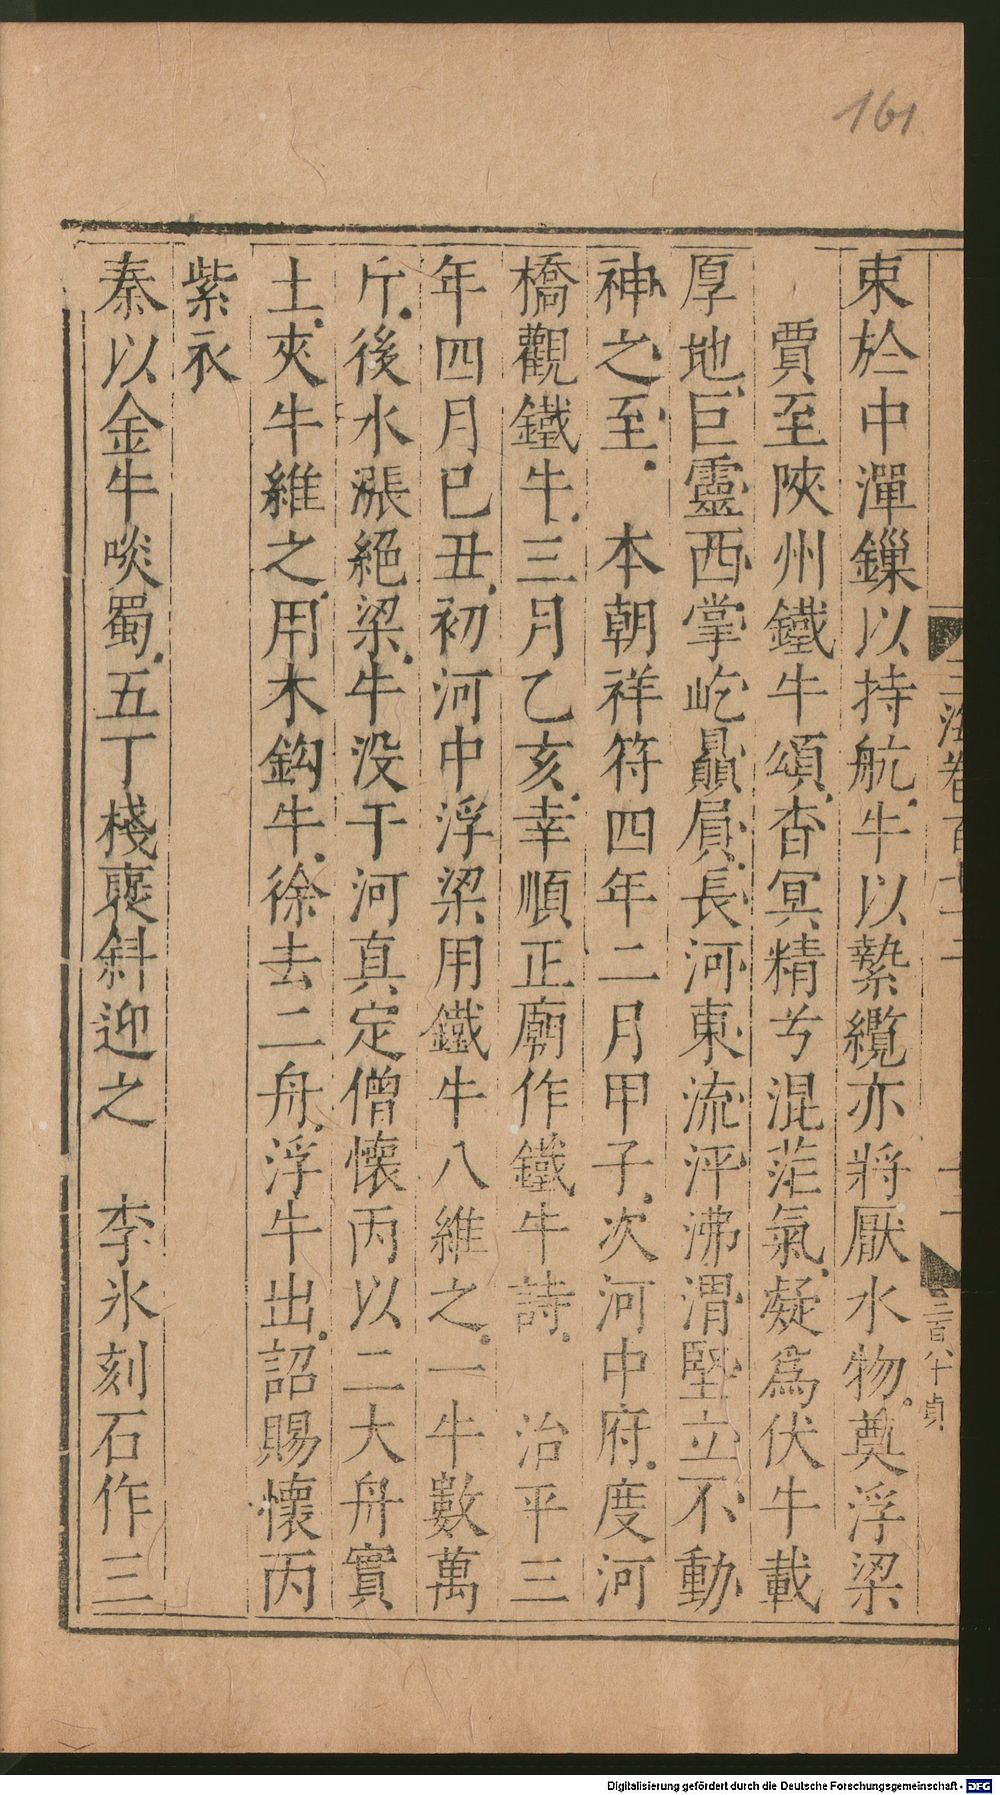 161
束於中潬鏁以持航牛以縶纜亦將厭水物奠浮梁
賈至陝州鐵牛頌杳冥精兮混茫氣凝爲伏牛載
厚地巨靈西掌屹贔屓長河東流泙沸渭堅立不動
神之至　本朝祥符四年二月甲子次河中府度河
橋觀鐵牛三月乙亥幸順正廟作鐵牛詩　治平三
年四月已丑初河中浮梁用鐵牛八維之一牛數萬
斤後水漲絕梁牛没于河真定僧懷丙以二大舟實
土夾牛維之用木鈎牛徐去二舟浮牛出詔賜懷丙
紫衣
秦以金牛啖蜀五丁棧褒斜迎之　李氷刻石作三
二百八十貞
Digitalisierung gefördert durch die Deutsche Forschungsgemeinschaft - DFG